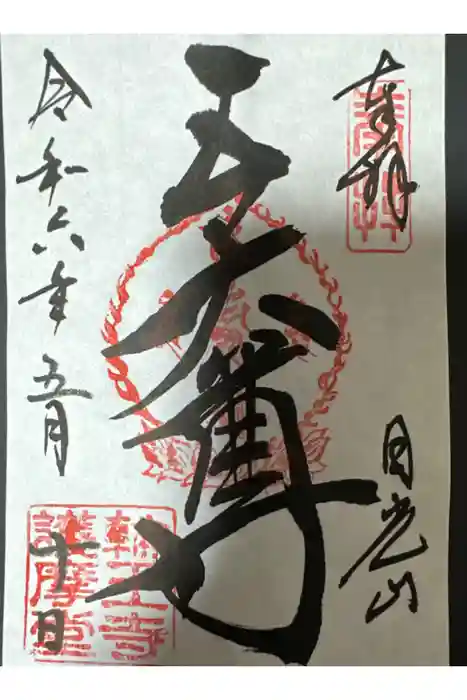 奉拝
日光山
五大尊
令和六年五月十日
輪王寺
護摩堂